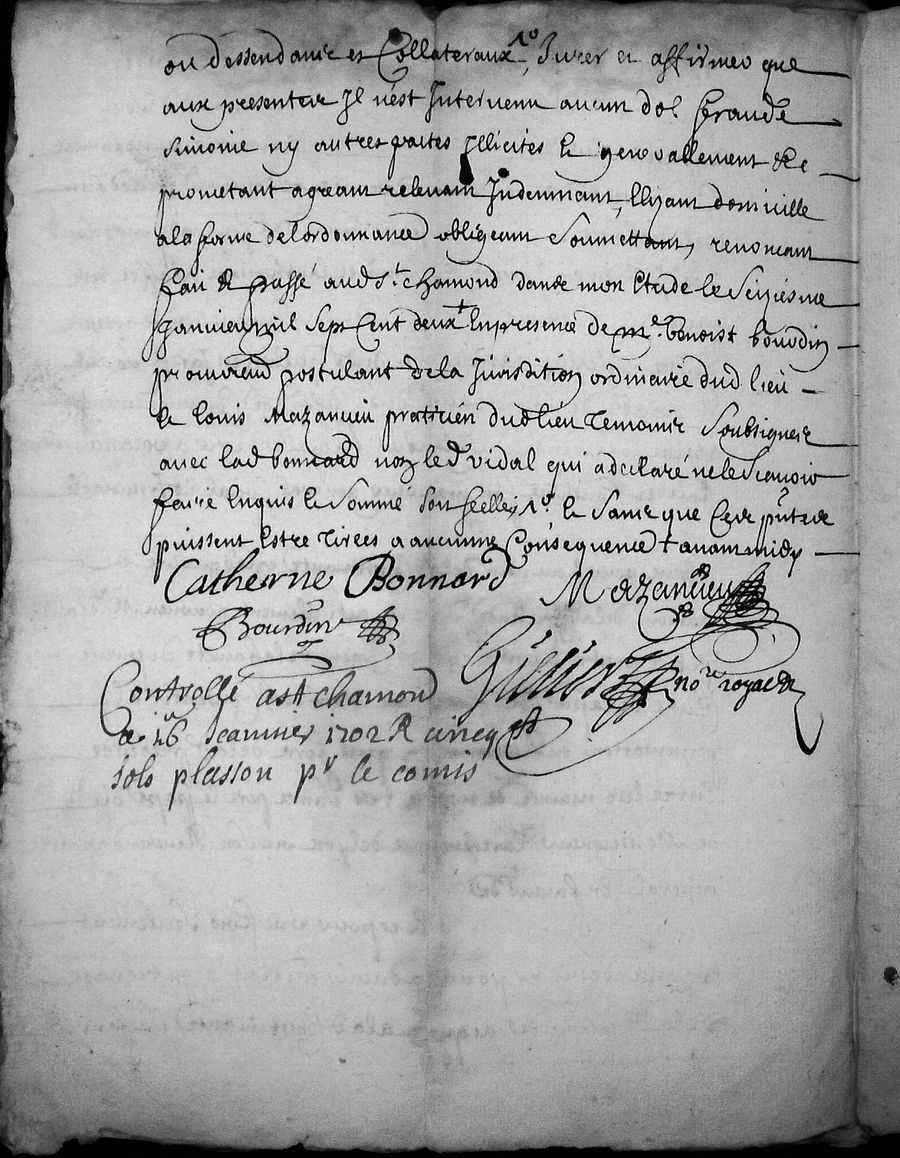 ou dessendans et Collateraux, Jurer et affirmer que
aux presentes Il n'est Intervenu aucun dol fraude
Simonie ny autres pactes Illicites & generallement &c
prometant agreant relevant Indemnant, Elizant domicille
a la forme de l'ordonnance obligeant Soumettant, renonçant
fait & passé aud St. chamond dans mon Etude le Seiziesme
Janvier mil Sept Cent deux + En presence de Me. benoist bourdin
procureur postulant de la Jurisdition ordinaire dud lieu
& louis Mazancieu pratitien dud lieu Temoins Soubsignez
avec lad bonnard non led vidal qui a declaré ne le Scavoir
faire Enquis & Sommé & Sans que Ces ptes
puissent Estre Tirées a aucune Consequence + avant midy
Catherine Bonnard Mazancieu
Bourdin
Controllé a st chamond no.re royal
le 16 Jeanvier 1702 R cincq
sols plasson pr le comis